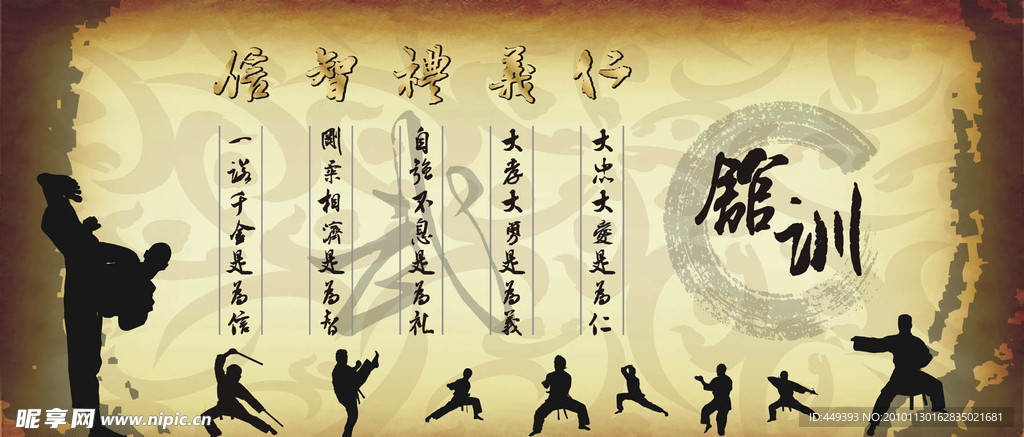 館训
仁
大忠大爱是為仁
義
大孝大勇是為義
禮
自強不息是為礼
智
剛柔相濟是為智
信
一诺千金是為信
武
昵享网 www.nipic.cn
ID:449393 NO:20101130162835021681